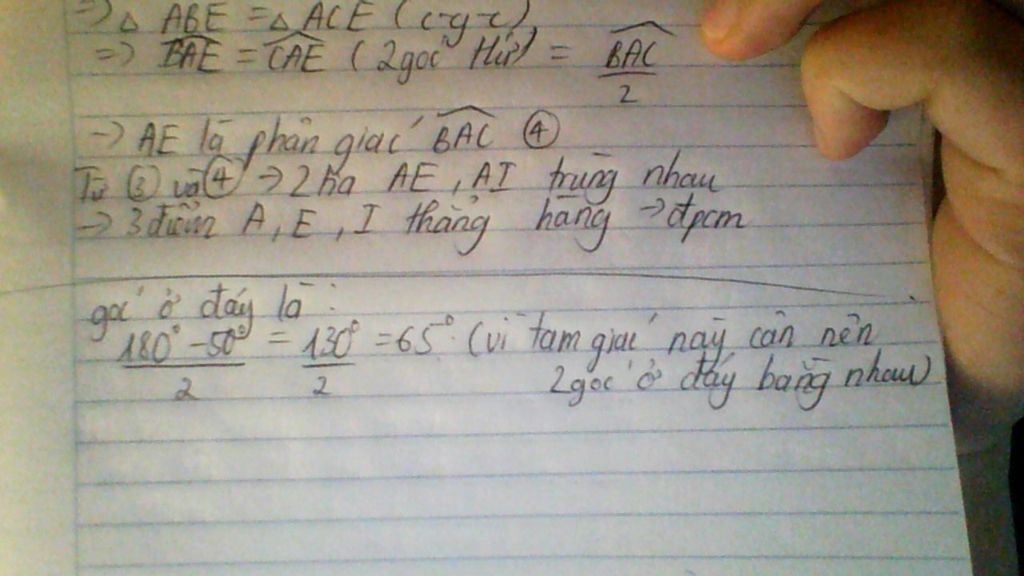 => △ ABE = △ ACE (c-g-c)
=> BAE = CAE (2 góc tứ) = BAC/2
-> AE là phân giác BAC ④
Từ ③ và ④ -> 2 tia AE, AI trùng nhau
-> 3 điểm A, E, I thẳng hàng -> đpcm
góc ở đáy là:
180° - 50°/2 = 130°/2 = 65° (vì tam giác này cân nên
2 góc ở đáy bằng nhau)